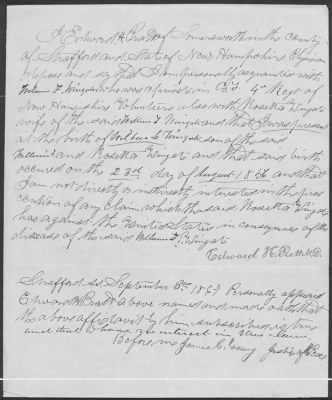 I Edward H. Pratt of Somersworth in the county
of Strafford and State of New Hampshire Physician
depose and say that I am personally acquainted with
William F. Wingate who was a private in Co F 4th Regt of
New Hampshire Volunteers also with Rosetta Wingate
wife of the said William F. Wingate and that I was present
at the birth of Wilbur Wingate son of the said
William and Rosetta Wingate and that said birth
occured on the 23d day of August 1856 and that
I am not directly or indirectly interested in the pros
cution of any claim which the said Rosetta Wingate
has against the United States in consequence of the
decease of the said William F. Wingate
Edward H. Pratt M.D.
Strafford ss September 6th 1867 Personally appeared
Edward H. Pratt above named and made oath that
the above affidavit by him subscribed is true
and that he has no interest in this claim
Before me James G. Young Justice of Peace